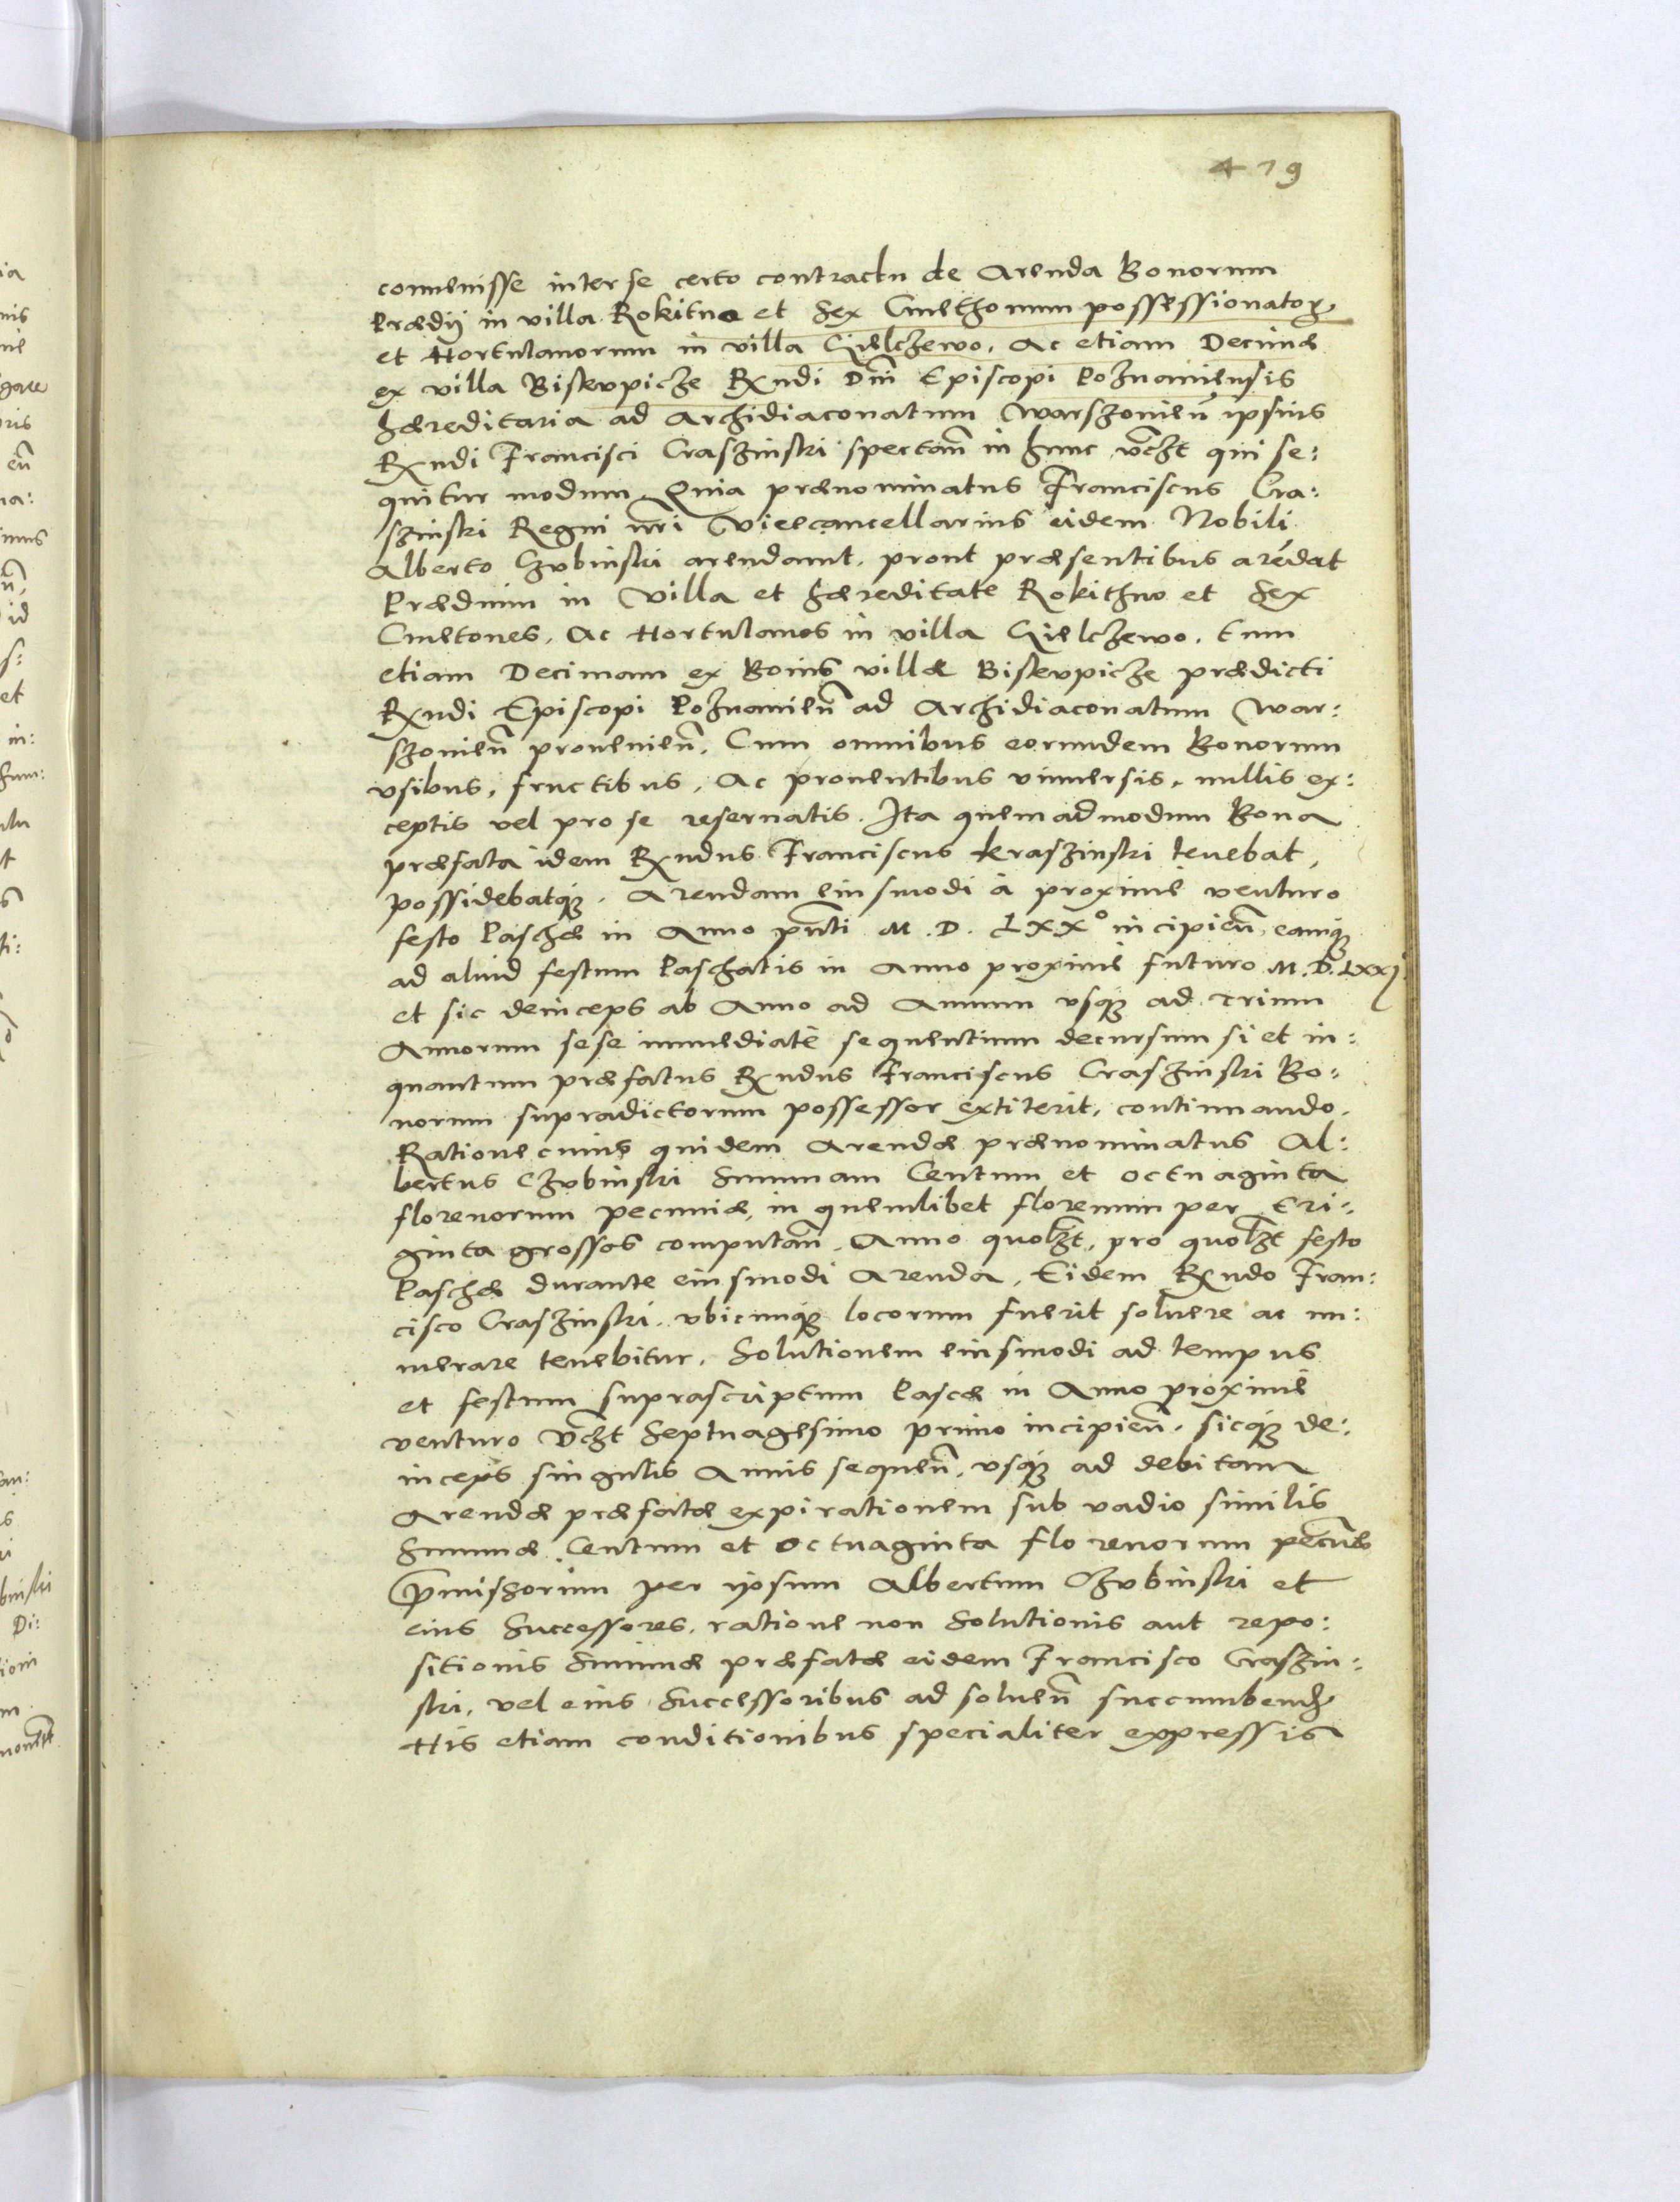 419
conuenisse inter se certo contractu de Arenda Bonorum
Prædij in villa Rokitno et Sex Cmethonum possessionatoꝝ
et Hortulanorum in villa Gielczewo, Ac etiam Decimæ
ex villa Biskupicze Rx̃ndi Dñi Episcopi Poznaniensis
hæreditaria ad Archidiaconatum Warszouieñ ipsius
Rx̃ndi Francisci Craszinski spectañ in hunc vc̃zt qui se:
quitur modum. Quia prænominatus Franciscus Cra:
szinski Regni nr̃i Vicecancellarius eidem Nobili
Alberto Czubinski arendauit, prout præsentibus arẽdat
Prædium in Villa et hæreditate Rokithno et Sex
Cmetones, Ac Hortulanos in villa Gielczewo, tum
etiam Decimam ex Bonis villæ Biskupicze prædicti
Rx̃ndi Episcopi Poznanieñ ad Archidiaconatum War:
szouieñ prouenieñ. Cum omnibus eorundem Bonorum
vsibus, fructibus, Ac prouentibus vniuersis, nullis ex:
ceptis vel pro se reseruatis. Ita quemadmodum Bona
præfata idem Rx̃ndus Franciscus Kraszinski tenebat,
possidebatqꝫ. Arendam eiusmodi à proximè venturo
festo Paschæ in Anno pñti M. D. LXX° incipieñ, eamqꝫ
ad aliud festum Paschatis in Anno proximè futuro M. D. Lxxj
et sic deinceps ab Anno ad Annum vsqꝫ ad trium
Annorum sese immediatè sequentium decursum si et in:
quantum præfatus Rx̃ndus Franciscus Craszinski Bo:
norum supradictorum possessor extiterit, continuando.
Ratione cuius quidem Arendæ prænominatus Al:
bertus Czubinski Summam Centum et octuaginta
florenorum pecuniæ, in quemlibet florenum per tri:
ginta grossos computañ, Anno quolꝫt, pro quolꝫt festo
Paschæ durante eiusmodi Arenda, Eidem Rx̃ndo Fran:
cisco Craszinski, vbicunqꝫ locorum fuerit soluere ac nu:
merare tenebitur, Solutionem eiusmodi ad tempus
et festum suprascriptum Pascæ in Anno proximè
venturo vc̃zt Septuagesimo primo incipieñ, sicqꝫ de:
inceps singulis Annis sequeñ, vsqꝫ ad debitam
Arendæ præfatæ expirationem sub vadio similis
Summæ Centum et Octuaginta florenorum pecuniæ
p̃missorum per ipsum Albertum Czubinski et
eius Successores, ratione non Solutionis aut repo:
sitionis Summæ præfatæ eidem Francisco Craszin:
ski, vel eius Successoribus ad solueñ succumbendꝫ
His etiam conditionibus specialiter expressis